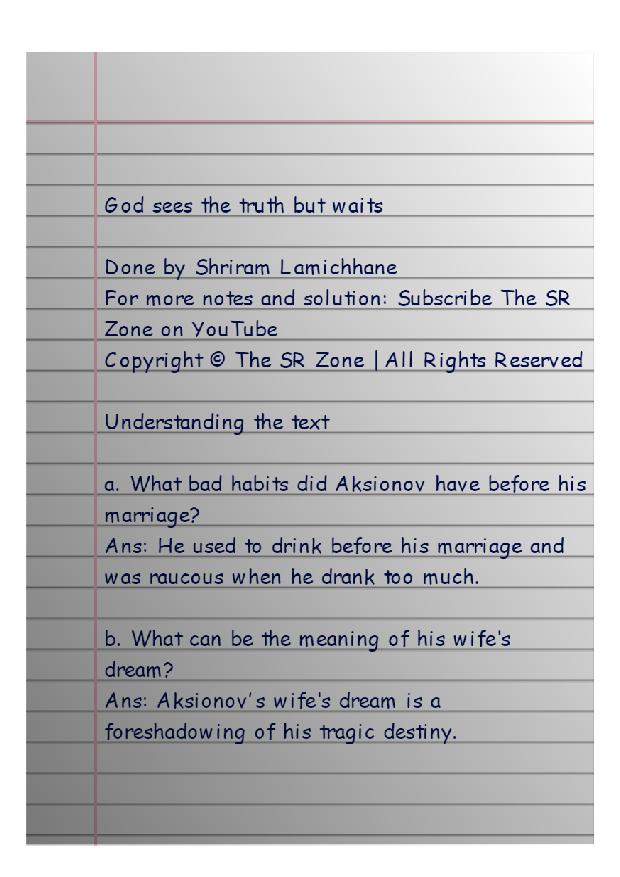 God sees the truth but waits
Done by Shriram Lamichhane
For more notes and solution: Subscribe The SR
Zone on YouTube
Copyright © The SR Zone | All Rights Reserved
Understanding the text
a. What bad habits did Aksionov have before his
marriage?
Ans: He used to drink before his marriage and
was raucous when he drank too much.
b. What can be the meaning of his wife's
dream?
Ans: Aksionov's wife's dream is a
foreshadowing of his tragic destiny.